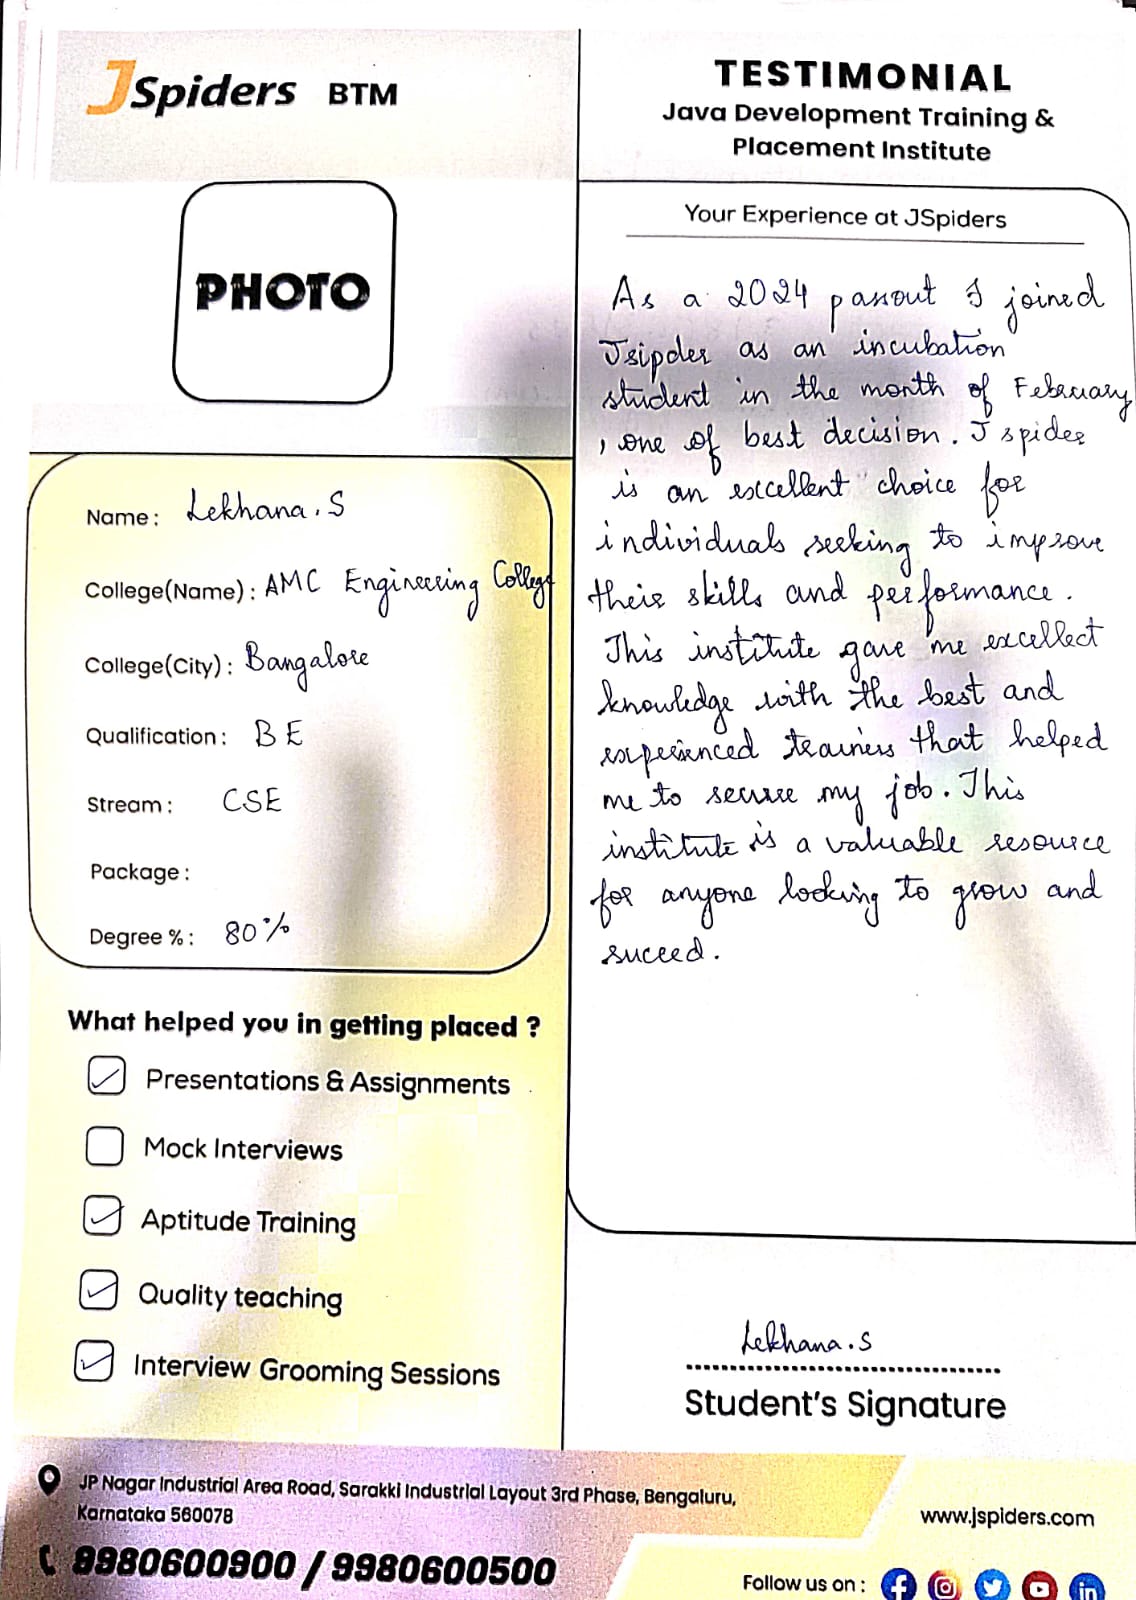 JSpiders BTM
TESTIMONIAL
Java Development Training &
Placement Institute
PHOTO
Name : Lekhana . S
College(Name) : AMC Engineering College
College(City) : Bangalore
Qualification : BE
Stream : CSE
Package :
Degree % : 80%
What helped you in getting placed ?
Presentations & Assignments
Mock Interviews
Aptitude Training
Quality teaching
Interview Grooming Sessions
Your Experience at JSpiders
As a 2024 passout I joined
Jsipder as an incubation
student in the month of February
, one of best decision. J spider
is an excellent choice for
individuals seeking to improve
their skills and performance.
This institute gave me excellect
knowledge with the best and
experienced trainers that helped
me to secure my job. This
institute is a valuable resource
for anyone looking to grow and
suceed.
Lekhana . S
Student's Signature
JP Nagar Industrial Area Road, Sarakki Industrial Layout 3rd Phase, Bengaluru,
Karnataka 560078
9980600900 / 9980600500
www.jspiders.com
Follow us on :